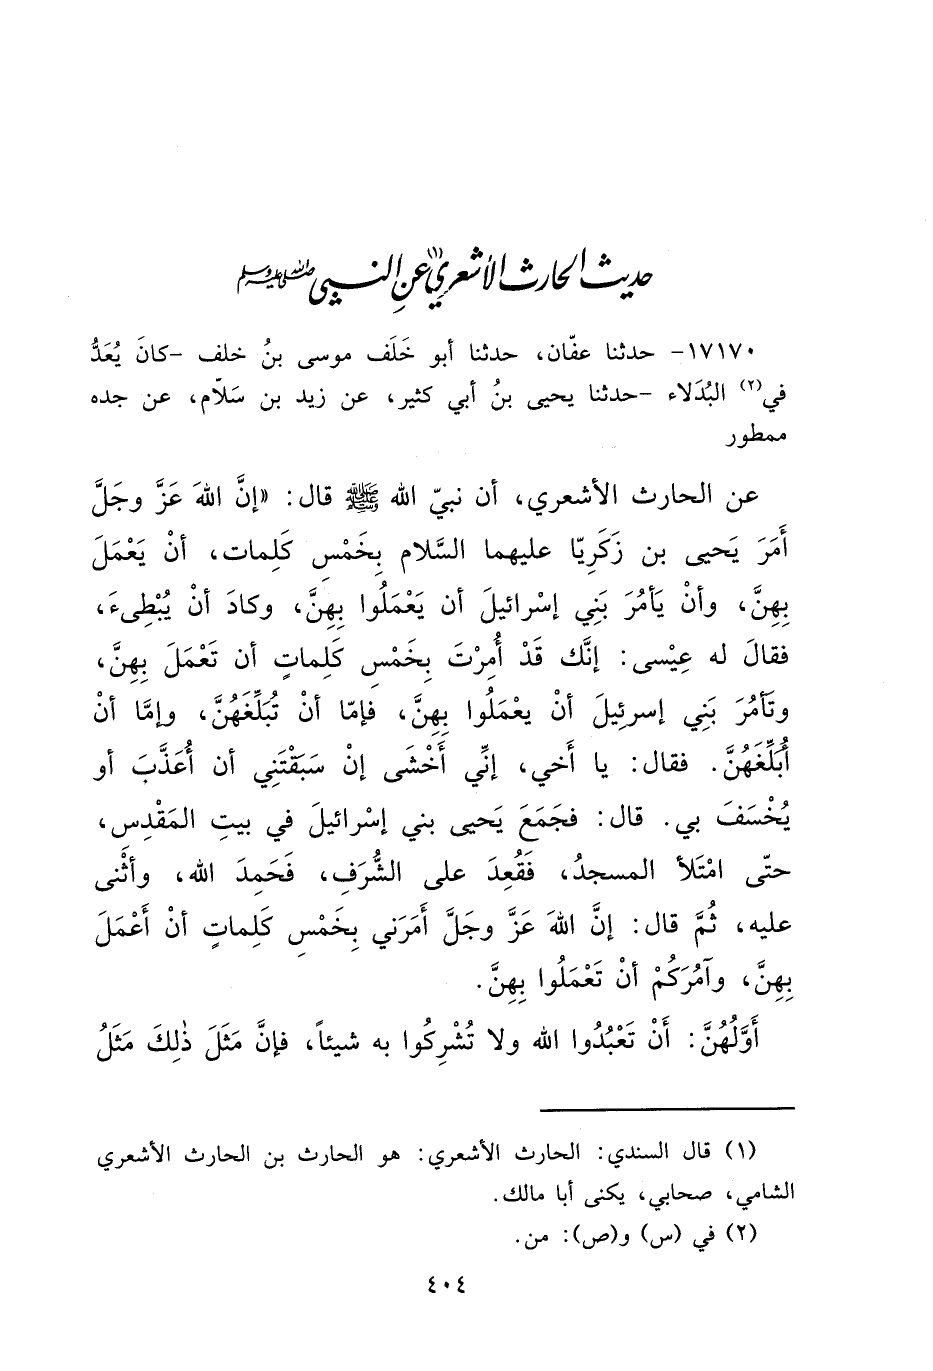 حديث الحارث الأشعري(١) عن النبي صلى الله عليه وسلم
١٧١٧٠- حدثنا عفّان، حدثنا أبو خَلَف موسى بنُ خلف -كانَ يُعَدُّ
في(٢) البُدَلاء -حدثنا يحيى بنُ أبي كثير، عن زيد بن سَلاّم، عن جده
ممطور
عن الحارث الأشعري، أن نبيّ الله ﷺ قال: «إنَّ اللهَ عَزَّ وجَلَّ
أَمَرَ يَحيى بن زَكَرِيّا عليهما السَّلام بِخَمْسِ كَلِمات، أنْ يَعْمَلَ
بِهِنَّ، وأنْ يَأمُرَ بَنِي إسْرائيلَ أن يَعْمَلُوا بِهِنَّ، وكادَ أنْ يُبْطِىءَ،
فقالَ له عِيْسى: إنَّك قَدْ أُمِرْتَ بِخَمْسِ كَلِماتٍ أن تَعْمَلَ بِهِنَّ،
وتَأمُرَ بَنِي إسرئِيلَ أنْ يعْمَلُوا بِهِنَّ، فإمّا أنْ تُبَلِّغَهُنَّ، وإمَّا أنْ
أُبَلِّغَهُنَّ. فقال: يا أَخي، إنِّي أَخْشَى إنْ سَبَقْتَنِي أن أُعَذَّبَ أو
يُخْسَفَ بي. قال: فجَمَعَ يَحيى بني إسْرائيلَ في بيتِ المَقْدِس،
حتّى امْتَلأ المسجدُ، فَقُعِدَ على الشُّرَفِ، فَحَمِدَ الله، وأثْنى
عليه، ثُمَّ قال: إنَّ اللهَ عَزَّ وجَلَّ أَمَرَني بِخَمْسِ كَلِماتٍ أنْ أَعْمَلَ
بِهِنَّ، وآمُرَكُمْ أنْ تَعْمَلُوا بِهِنَّ.
أَوَّلُهُنَّ: أنْ تَعْبُدُوا الله ولا تُشْرِكُوا به شيئاً، فإنَّ مَثَلَ ذٰلِكَ مَثَلُ
(١) قال السندي: الحارث الأشعري: هو الحارث بن الحارث الأشعري
الشامي، صحابي، يكنى أبا مالك.
(٢) في (س) و(ص): من.
٤٠٤